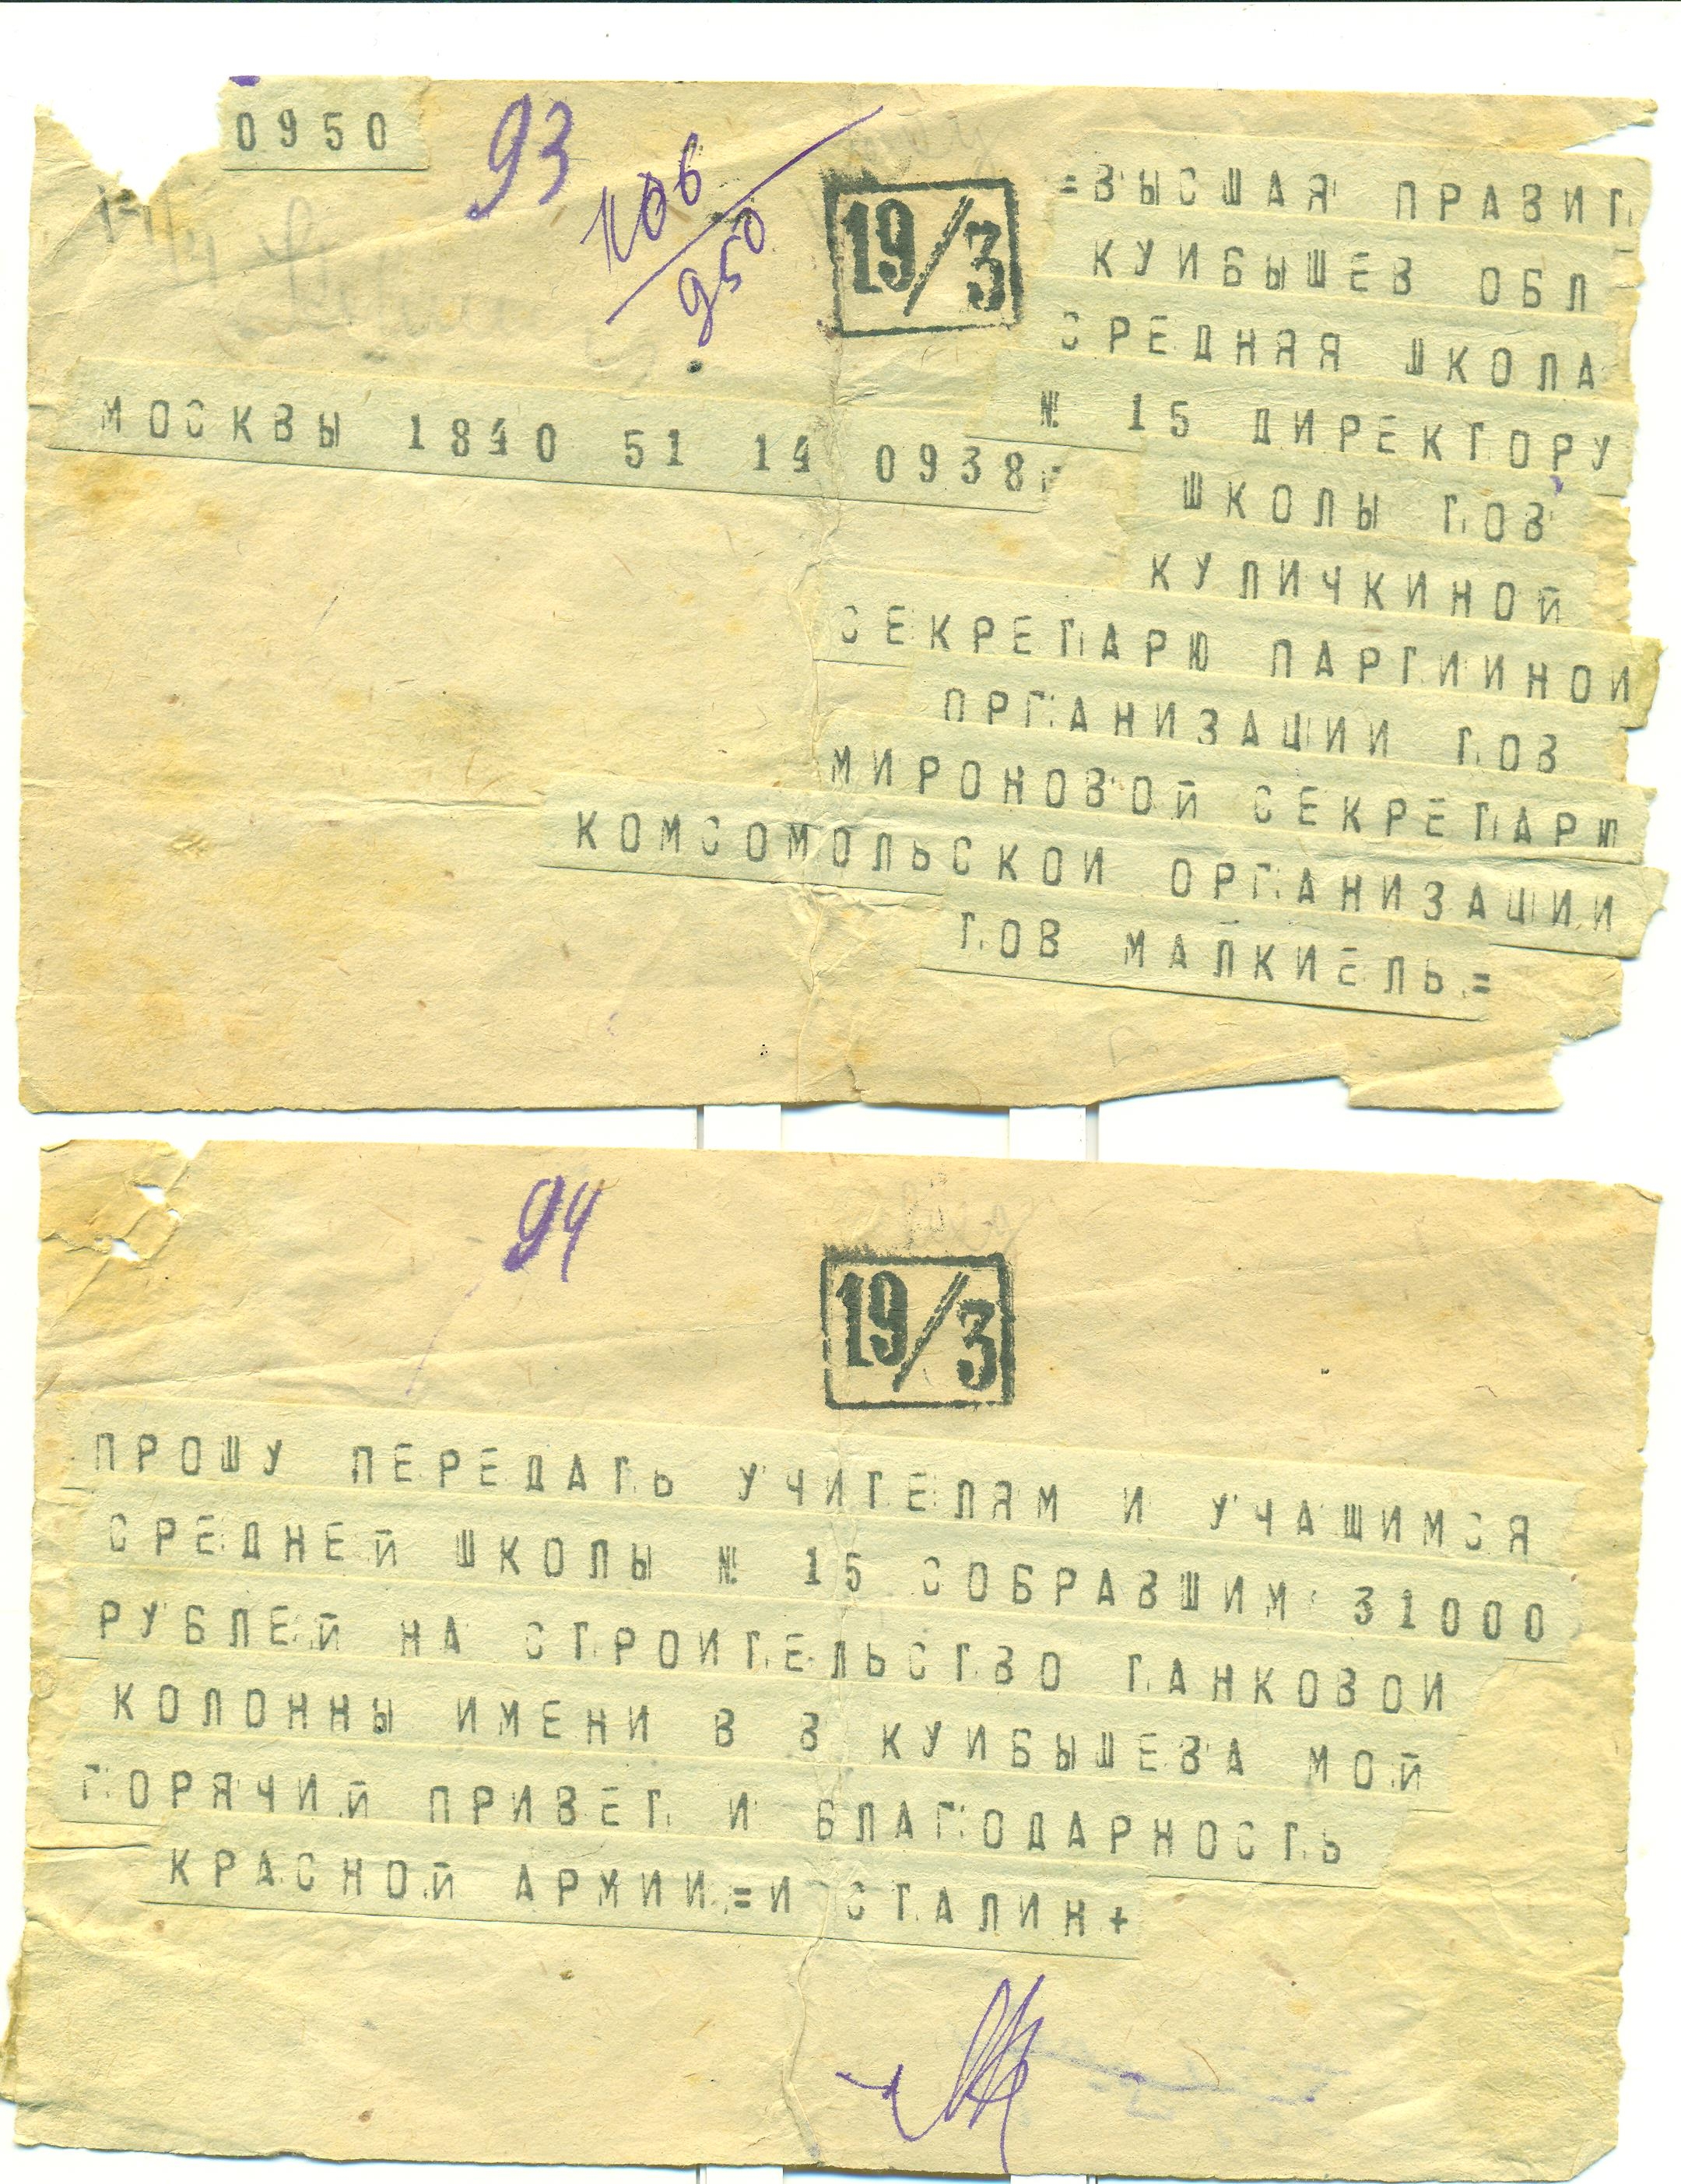 0950
93
106
950
19/3
=ВЫСШАЯ ПРАВИТ
КУИБЫШЕВ ОБЛ
СРЕДНЯЯ ШКОЛА
№ 15 ДИРЕКТОРУ
МОСКВЫ 1840 51 14 0938=
ШКОЛЫ ТОВ
КУЛИЧКИНОЙ
СЕКРЕТАРЮ ПАРТИИНОИ
ОРГАНИЗАЦИИ ТОВ
МИРОНОВОЙ СЕКРЕТАРЮ
КОМСОМОЛЬСКОИ ОРГАНИЗАЦИИ
ТОВ МАЛКИЕЛЬ=
94
19/3
ПРОШУ ПЕРЕДАТЬ УЧИТЕЛЯМ И УЧАШИМСЯ
СРЕДНЕЙ ШКОЛЫ № 15 СОБРАВШИМ 31000
РУБЛЕЙ НА СТРОИТЕЛЬСТВО ТАНКОВОИ
КОЛОННЫ ИМЕНИ В В КУИБЫШЕВА МОЙ
ГОРЯЧИЙ ПРИВЕТ И БЛАГОДАРНОСТЬ
КРАСНОЙ АРМИИ=И СТАЛИН+